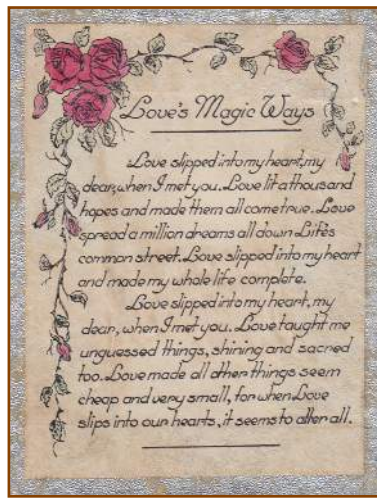 Love's Magic Ways
Love slipped into my heart, my
dear, when I met you. Love lit a thousand
hopes and made them all come true. Love
spread a million dreams all down Life's
common street. Love slipped into my heart
and made my whole life complete.
Love slipped into my heart, my
dear, when I met you. Love taught me
unguessed things, shining and sacred
too. Love made all other things seem
cheap and very small, for when Love
slips into our hearts, it seems to alter all.